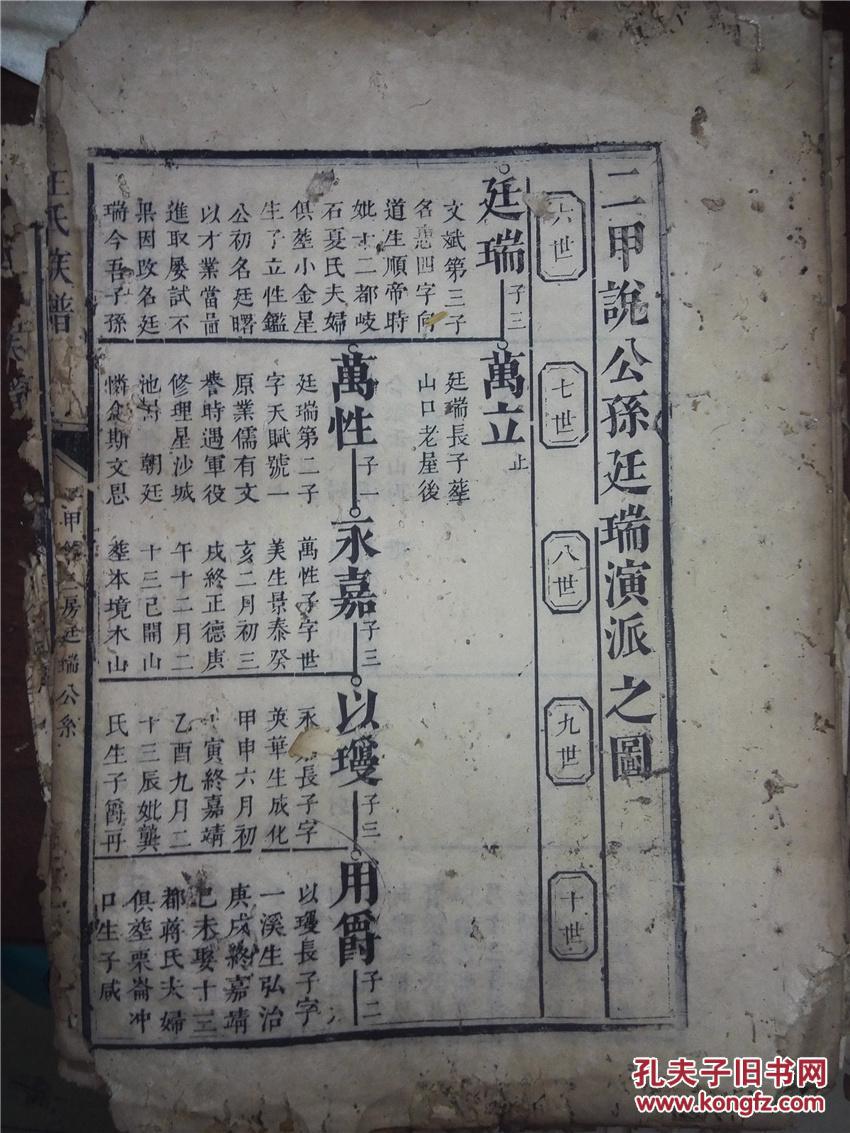 二甲說公孫廷瑞演派之圖
六世
七世
八世
九世
十世
廷瑞
子三
文斌第三子
名惠四字向
道生順帝時
妣十二都岐
石夏氏夫婦
俱塟小金星
生子立性鑑
公初名廷曙
以才業當
進取屢試不
果因改名廷
瑞今吾子孫
萬立
止
廷瑞長子葬
山口老屋後
萬性
子一
廷瑞第二子
字天賦號一
原業儒有文
譽時遇軍役
修理星沙城
池 朝廷
憐念斯文恩
永嘉
子三
萬性子字世
美生景泰癸
亥二月初三
戌終正德庚
午十二月二
十三己開山
塟本境木山
以瓊
子三
永 長子字
英華生成化
甲申六月初
寅終嘉靖
乙酉九月二
十三辰妣龔
氏生子爵再
用爵
子二
以瓊長子字
一溪生弘治
庚戌終嘉靖
己未娶十三
都蔣氏夫婦
俱塟栗崙冲
口生子咸
王氏族譜
甲 二房廷瑞公系
孔夫子旧书网
www.kongfz.com